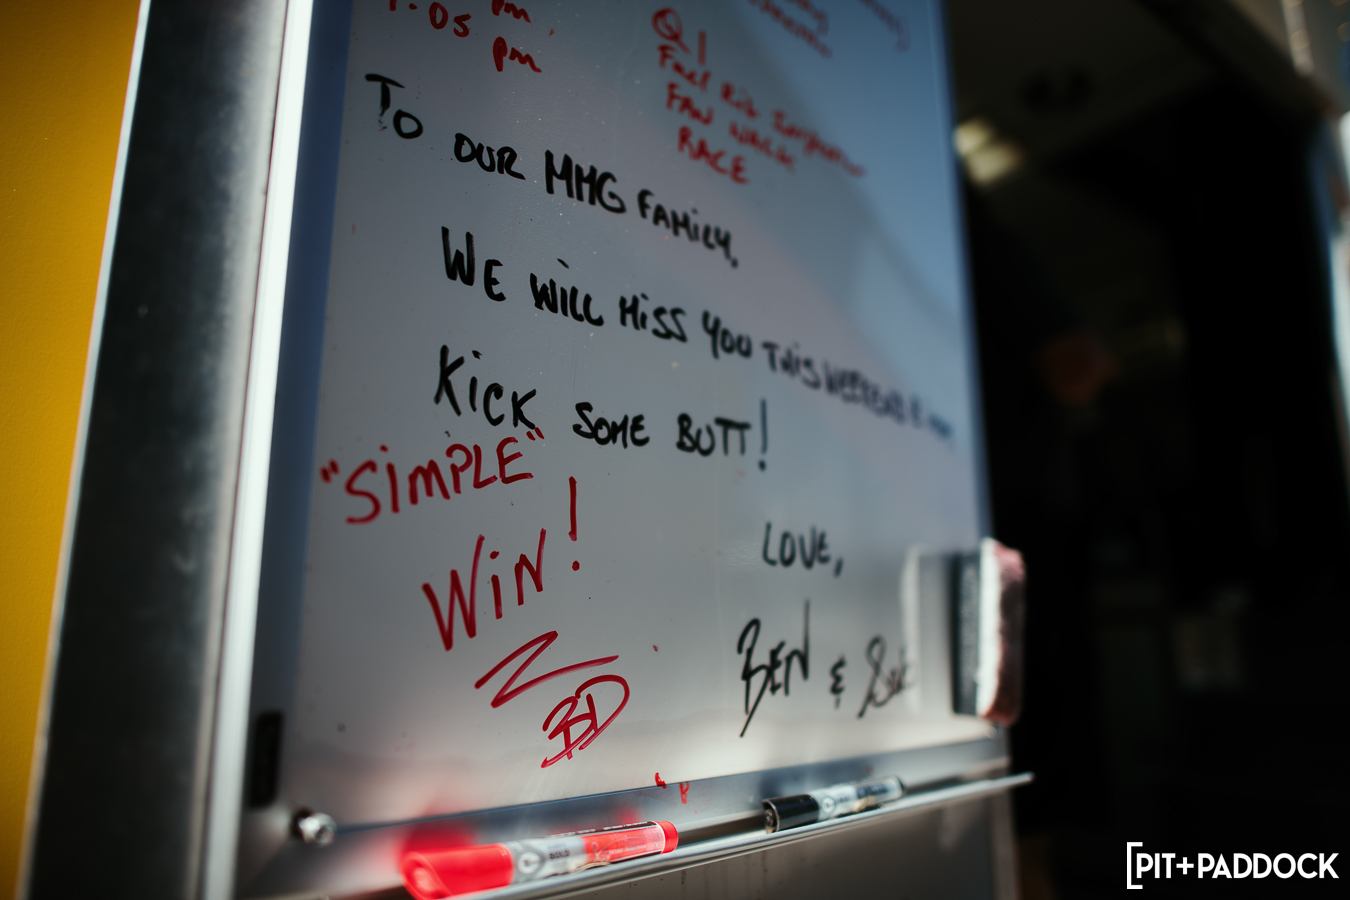 :05 pm
pm
Q1
Fuel Rig
FAN WALK
RACE
TO OUR MMG FAMILY,
WE WILL MISS YOU THIS WEEKEND
KICK SOME BUTT!
"SIMPLE"
WIN!
BD
LOVE,
BEN &
BOLD
[PIT+PADDOCK